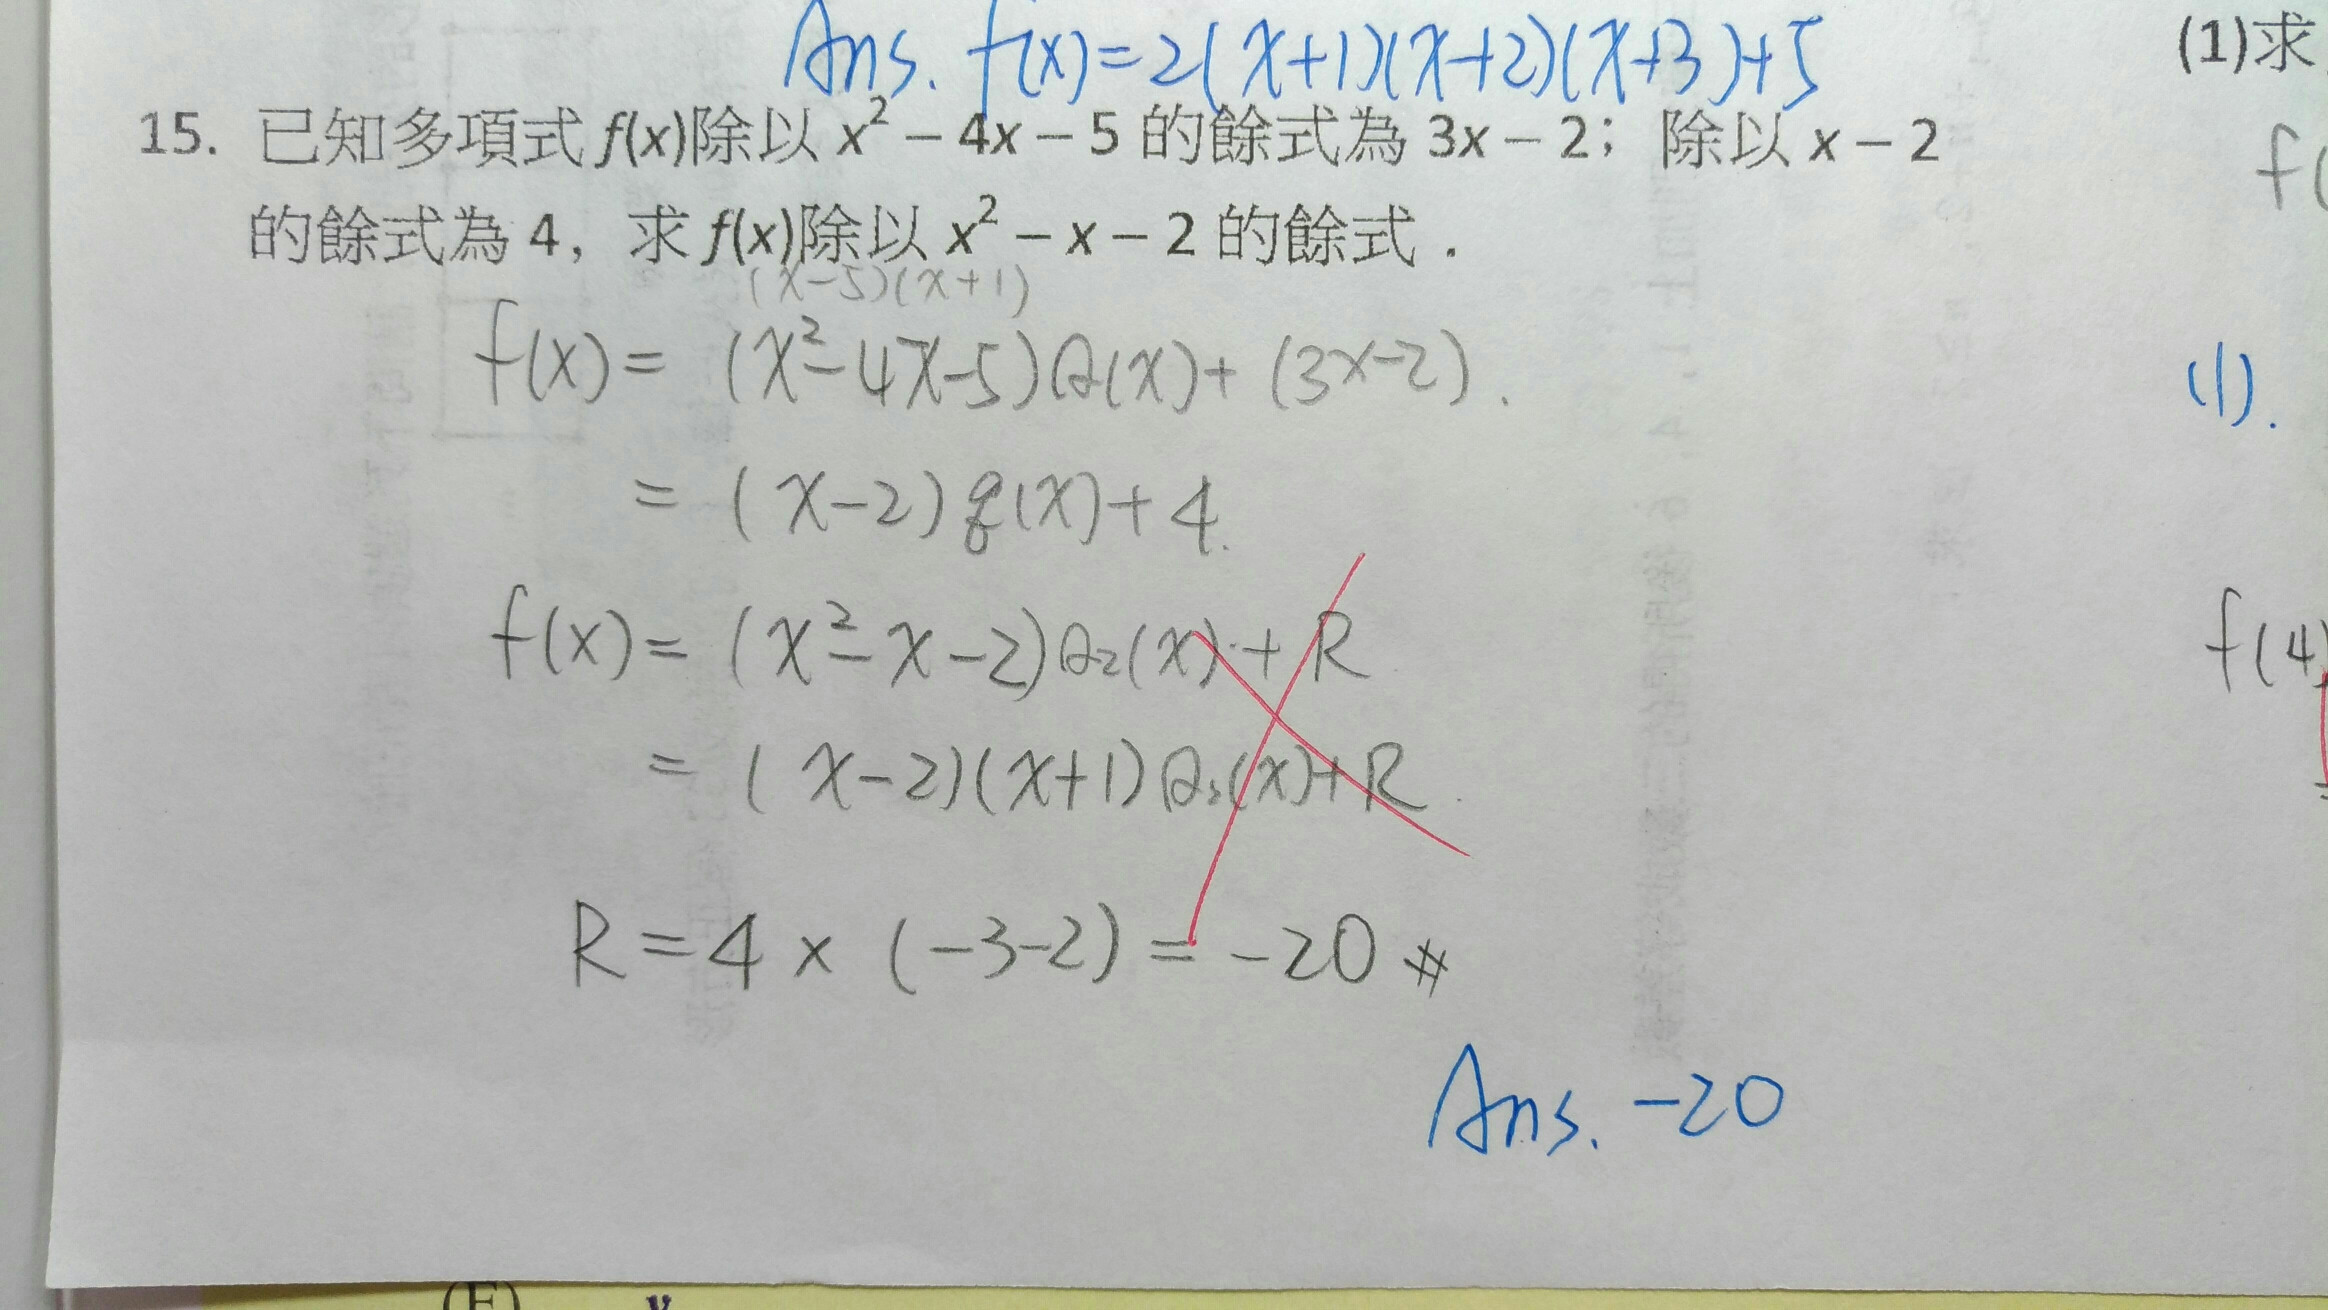 Ans. f(x)=2(x+1)(x+2)(x+3)+5
15. 已知多項式 f(x)除以 x² − 4x − 5 的餘式為 3x − 2；除以 x − 2
的餘式為 4，求 f(x)除以 x² − x − 2 的餘式．
(x−5)(x+1)
f(x)= (x²−4x−5)Q(x)+(3x−2).
= (x−2)q(x)+4.
f(x)= (x²−x−2)Q₂(x)+R
= (x−2)(x+1)Q₂(x)+R.
R=4×(−3−2)=−20 #
Ans. −20
(1)求
f(
(1).
f(4)
(E)
y